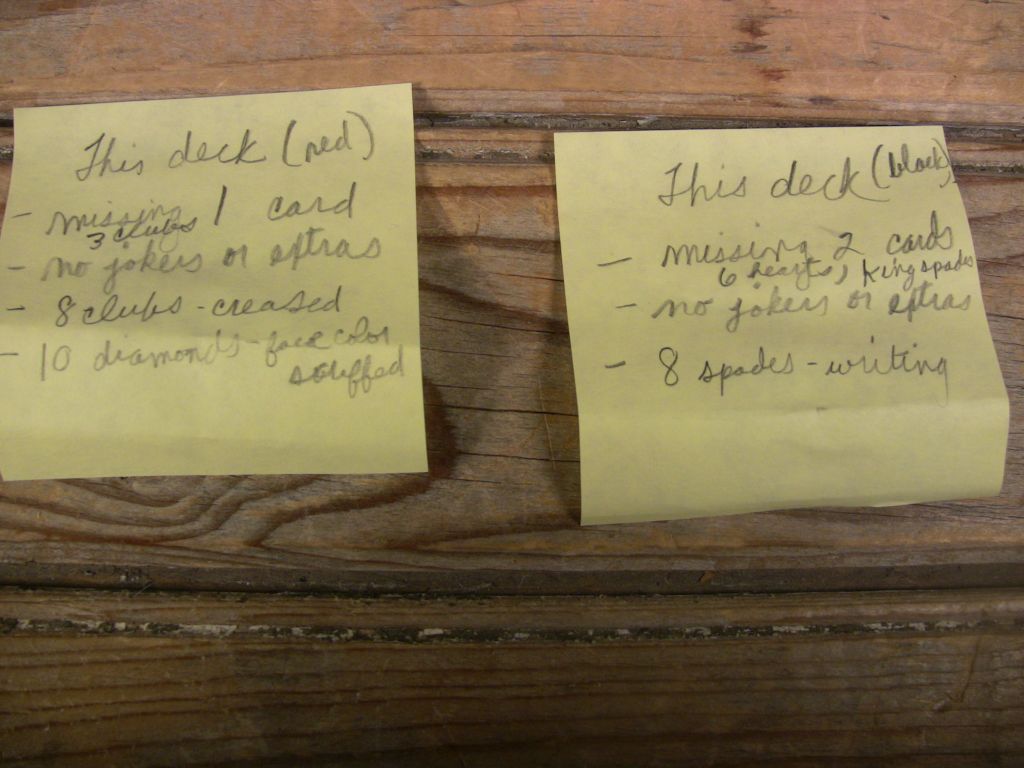 This deck (red)
- missing 1 card
3 clubs
- no jokers or extras
- 8 clubs - creased
- 10 diamonds - face color
scuffed
This deck (black)
- missing 2 cards
6 hearts, king spades
- no jokers or extras
- 8 spades - writing